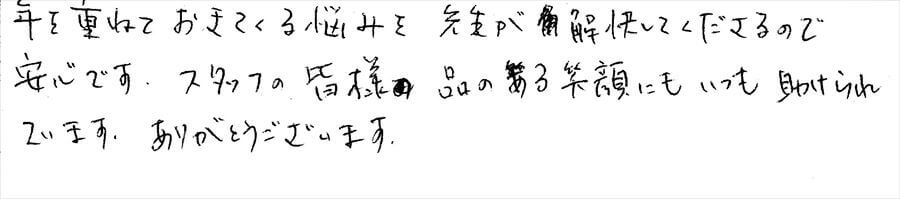 年を重ねておきてくる悩みを 先生が解決してくださるので
安心です. スタッフの皆様 品のある笑顔にもいつも助けられ
ています. ありがとうございます.